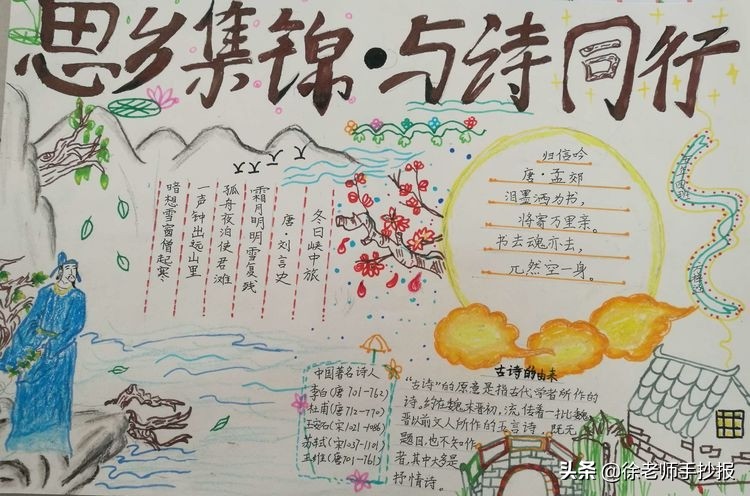 思乡集锦·与诗同行
冬日峡中旅
唐·刘言史
霜月明明雪复残
孤舟夜泊使君滩
一声钟出远山里
暗想雪窗僧起寒
归信吟
唐·孟郊
泪墨洒为书,
将寄万里亲。
书去魂亦去,
兀然空一身。
中国著名诗人
李白(唐701-762)
杜甫(唐712-770)
王安石(宋1021-1086)
苏轼(宋1037-1101)
王维(唐701-761)
古诗的由来
“古诗”的原意是指古代学者所作的
诗,约在魏末晋初,流传着一批魏
晋以前文人所作的五言诗,既无
题目,也不知作
者,其中大多是
抒情诗。
头条@徐老师手抄报